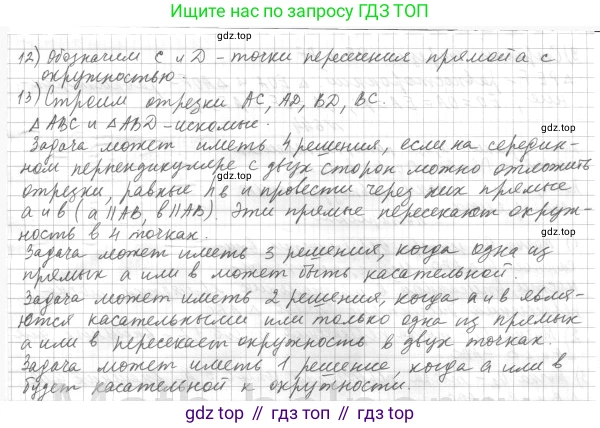 Ищите нас по запросу ГДЗ ТОП
gdz.top
12) Обозначим C и D - точки пересечения прямой a с
окружностью.
gdz.top
13) Строим отрезки AC, AD, BD, BC.
△ABC и △ABD - искомые.
gdz.top
Задача может иметь 4 решения, если на середин-
ном перпендикуляре с двух сторон можно отложить
отрезки, равные hв и провести через них прямые
a и в (a∥AB, в∥AB). Эти прямые пересекают окруж-
ность в 4 точках.
gdz.top
Задача может иметь 3 решения, когда одна из
прямых a или в может быть касательной.
gdz.top
Задача может иметь 2 решения, когда a и в явля-
ются касательными или только одна из прямых
a или в пересекает окружность в двух точках.
gdz.top
Задача может иметь 1 решение, когда a или в
будет касательной к окружности.
gdz.top
gdz top // гдз топ // gdz top // гдз топ